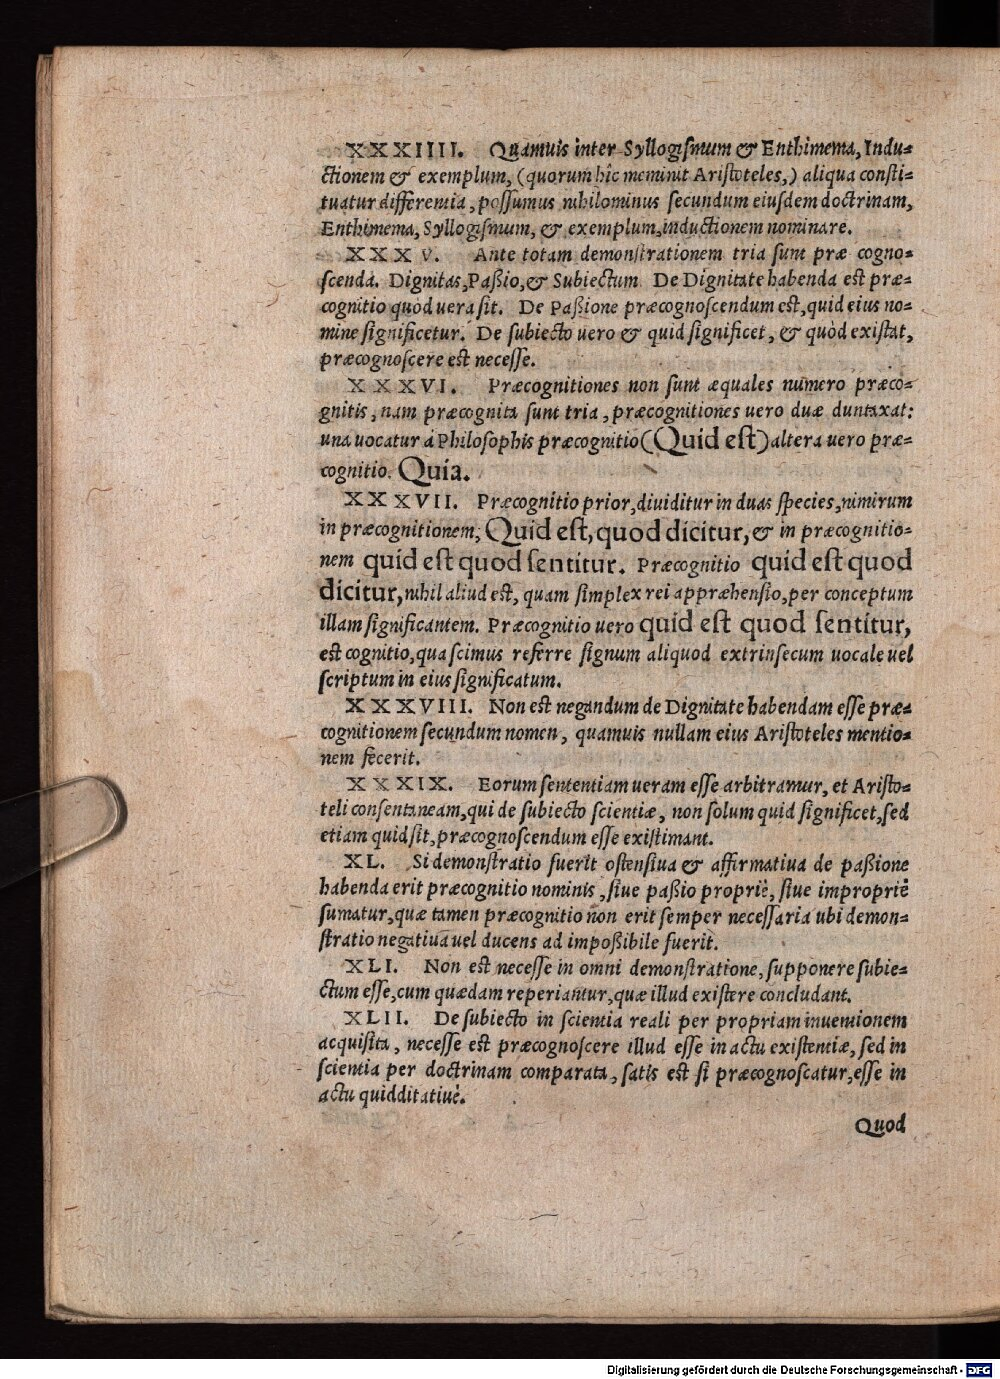 XXXIIII. Quamuis inter Syllogiſmum & Enthimema, Indu=
ctionem & exemplum, (quorum hîc meminit Ariſtoteles,) aliqua conſti=
tuatur differentia, poſſumus nihilominus ſecundum eiuſdem doctrinam,
Enthimema, Syllogiſmum, & exemplum, inductionem nominare.
XXXV. Ante totam demonſtrationem tria ſunt præ cogno=
ſcenda. Dignitas, Paßio, & Subiectum De Dignitate habenda est præ=
cognitio quòd uera ſit. De Paßione præcognoſcendum est, quid eius no=
mine ſignificetur. De ſubiecto uero & quid ſignificet, & quòd exiſtat,
præcognoſcere est neceſſe.
XXXVI. Præcognitiones non ſunt æquales numero præco=
gnitis, nam præcognita ſunt tria, præcognitiones uero duæ duntaxat:
una uocatur à Philoſophis præcognitio (Quid eſt) altera uero præ=
cognitio. Quia.
XXXVII. Præcognitio prior, diuiditur in duas ſpecies, nimirum
in præcognitionem, Quid eſt, quod dicitur, & in præcognitio=
nem quid eſt quod ſentitur. Præcognitio quid eſt quod
dicitur, nihil aliud eſt, quam ſimplex rei appræhenſio, per conceptum
illam ſignificantem. Præcognitio uero quid eſt quod ſentitur,
eſt cognitio, qua ſcimus referre ſignum aliquod extrinſecum uocale uel
ſcriptum in eius ſignificatum.
XXXVIII. Non eſt negandum de Dignitate habendam eſſe præ=
cognitionem ſecundum nomen, quamuis nullam eius Ariſtoteles mentio=
nem fecerit.
XXXIX. Eorum ſententiam ueram eſſe arbitramur, et Ariſto=
teli conſentaneam, qui de ſubiecto ſcientiæ, non ſolum quid ſignificet, ſed
etiam quid ſit, præcognoſcendum eſſe exiſtimant.
XL. Si demonſtratio fuerit oſtenſiua & affirmatiua de paßione
habenda erit præcognitio nominis, ſiue paßio propriè, ſiue impropriè
ſumatur, quæ tamen præcognitio non erit ſemper neceſſaria ubi demon=
ſtratio negatiua uel ducens ad impoßibile fuerit.
XLI. Non eſt neceſſe in omni demonſtratione, ſupponere ſubie=
ctum eſſe, cum quædam reperiantur, quæ illud exiſtere concludant.
XLII. De ſubiecto in ſcientia reali per propriam inuentionem
acquiſita, neceſſe eſt præcognoſcere illud eſſe in actu exiſtentiæ, ſed in
ſcientia per doctrinam comparata, ſatis eſt ſi præcognoſcatur, eſſe in
actu quidditatiuè.
Quod
Digitalisierung gefördert durch die Deutsche Forschungsgemeinschaft - DFG